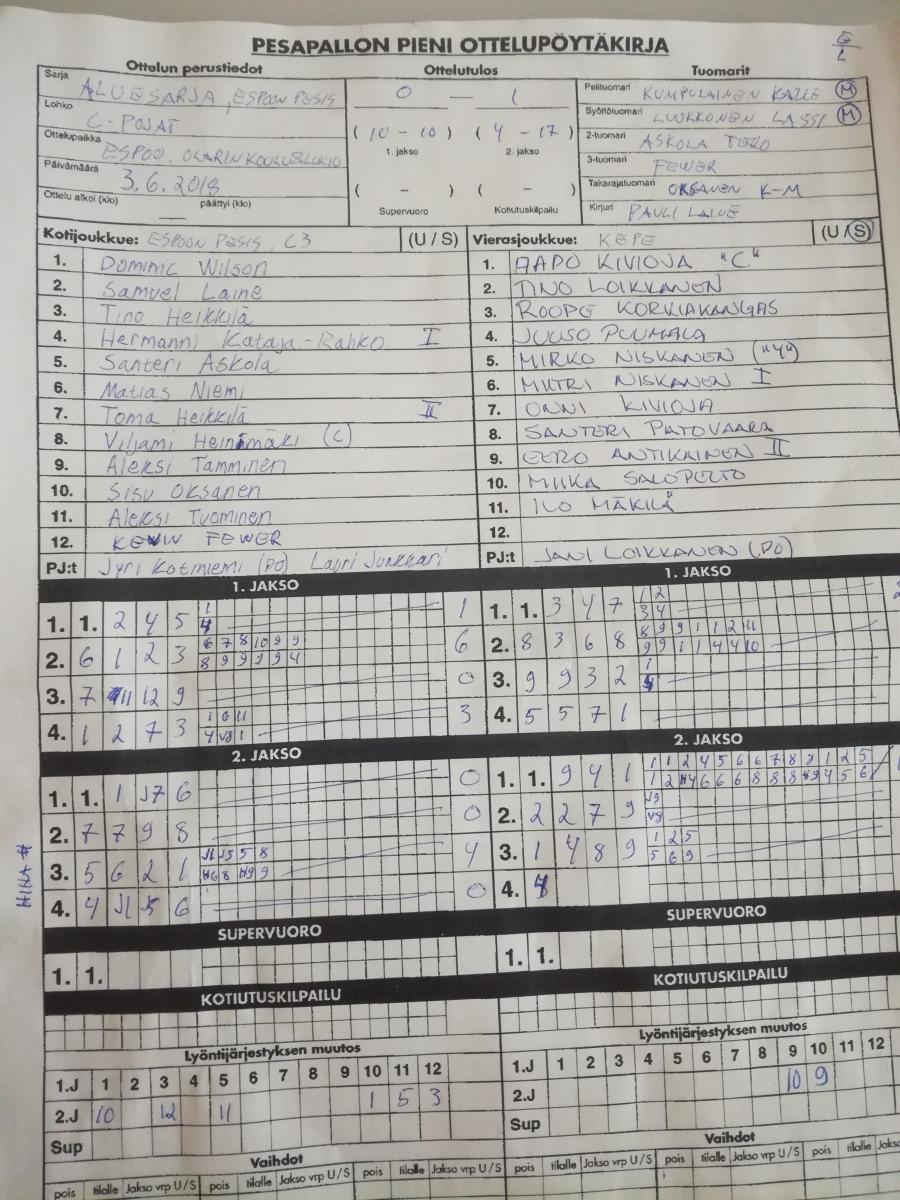 PESAPALLON PIENI OTTELUPÖYTÄKIRJA
Ottelun perustiedot
Sarja ALUESARJA, ESPOON PESIS
Lohko C-POJAT
Ottelupaikka ESPOO, OLARIN KOULU&LUKIO
Päivämäärä 3.6.2018
Ottelu alkoi (klo) päättyi (klo)
Ottelutulos
0 — 1
(10 - 10) (4 - 17)
1. jakso 2. jakso
( - ) ( - )
Supervuoro Kotiutuskilpailu
Tuomarit
Pelituomari KUMPULAINEN KALLE M
Syöttötuomari LUUKKONEN LASSI M
2-tuomari ASKOLA TERO
3-tuomari FEWER
Takarajatuomari OKSANEN K-M
Kirjuri PAULI LAINE
Kotijoukkue: ESPOON PESIS, C3 (U / S)
1. Dominic Wilson
2. Samuel Laine
3. Tino Heikkilä
4. Hermanni Kataja-Rahko I
5. Santeri Askola
6. Matias Niemi
7. Toma Heikkilä II
8. Viljami Heinimäki (C)
9. Aleksi Tamminen
10. Sisu Oksanen
11. Aleksi Tuominen
12. KEVIN FEWER
PJ:t Jyri Kotiniemi (PO) Lauri Junkkari
Vierasjoukkue: KEPE (U / S)
1. AAPO KIVIOJA "C"
2. TINO LOIKKANEN
3. ROOPE KORKIAKANGAS
4. JUUSO PUUMALA
5. MIRKO NISKANEN ("4")
6. MIITRI NISKANEN I
7. ONNI KIVIOJA
8. SANTERI PATOVAARA
9. EERO ANTIKAINEN II
10. MIIKA SALOPELTO
11. ILO MÄKILÄ
12.
PJ:t JANI LOIKKANEN (PO)
1. JAKSO
1. 1. 2 4 5 1
2. 6 1 2 3 6 7 8 10 9 9 6
8 9 9 9 9 4
3. 7 11 12 9 0
4. 1 2 7 3 1 6 11 3
2. JAKSO
1. 1. 1 J7 6 0
2. 7 7 9 8 0
3. 5 6 2 1 J1 J3 5 8 4
4. 4 J1 J5 6 0
HINA #
SUPERVUORO
1. 1.
KOTIUTUSKILPAILU
Lyöntijärjestyksen muutos
1.J 1 2 3 4 5 6 7 8 9 10 11 12
2.J 10 12 11 1 5 3
Sup
Vaihdot
pois tilalle Jakso vrp U/S pois tilalle Jakso vrp U/S
1. JAKSO
1. 1. 3 4 7 1 2
3 4
2. 8 3 6 8 8 9 9 1 1 2 11
9 9 1 1 4 4 10
3. 9 9 3 2 1
4. 5 5 7 1
2. JAKSO
1. 1. 9 4 1 1 1 2 4 5 6 6 7 8 9 1 2 5
2. 2 2 7 9 J9
V8
3. 1 4 8 9 1 2 5
5 6 9
4.
SUPERVUORO
1. 1.
KOTIUTUSKILPAILU
Lyöntijärjestyksen muutos
1.J 1 2 3 4 5 6 7 8 9 10 11 12
2.J 10 9
Sup
Vaihdot
pois tilalle Jakso vrp U/S pois tilalle Jakso